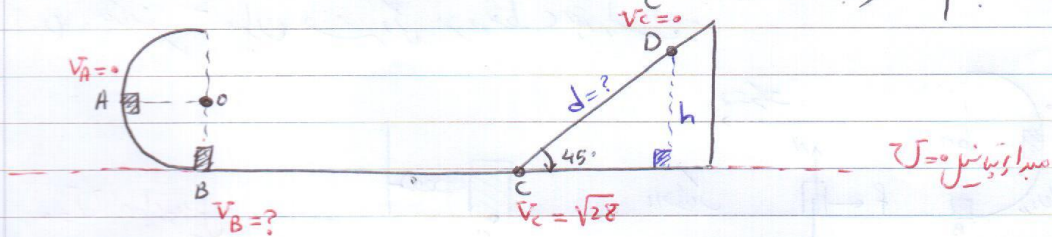 V_C = 0
D
V_A = 0
A
O
d = ?
h
45°
B
C
V_B = ?
V_C = √28
U = 0 مبدا پتانسیل